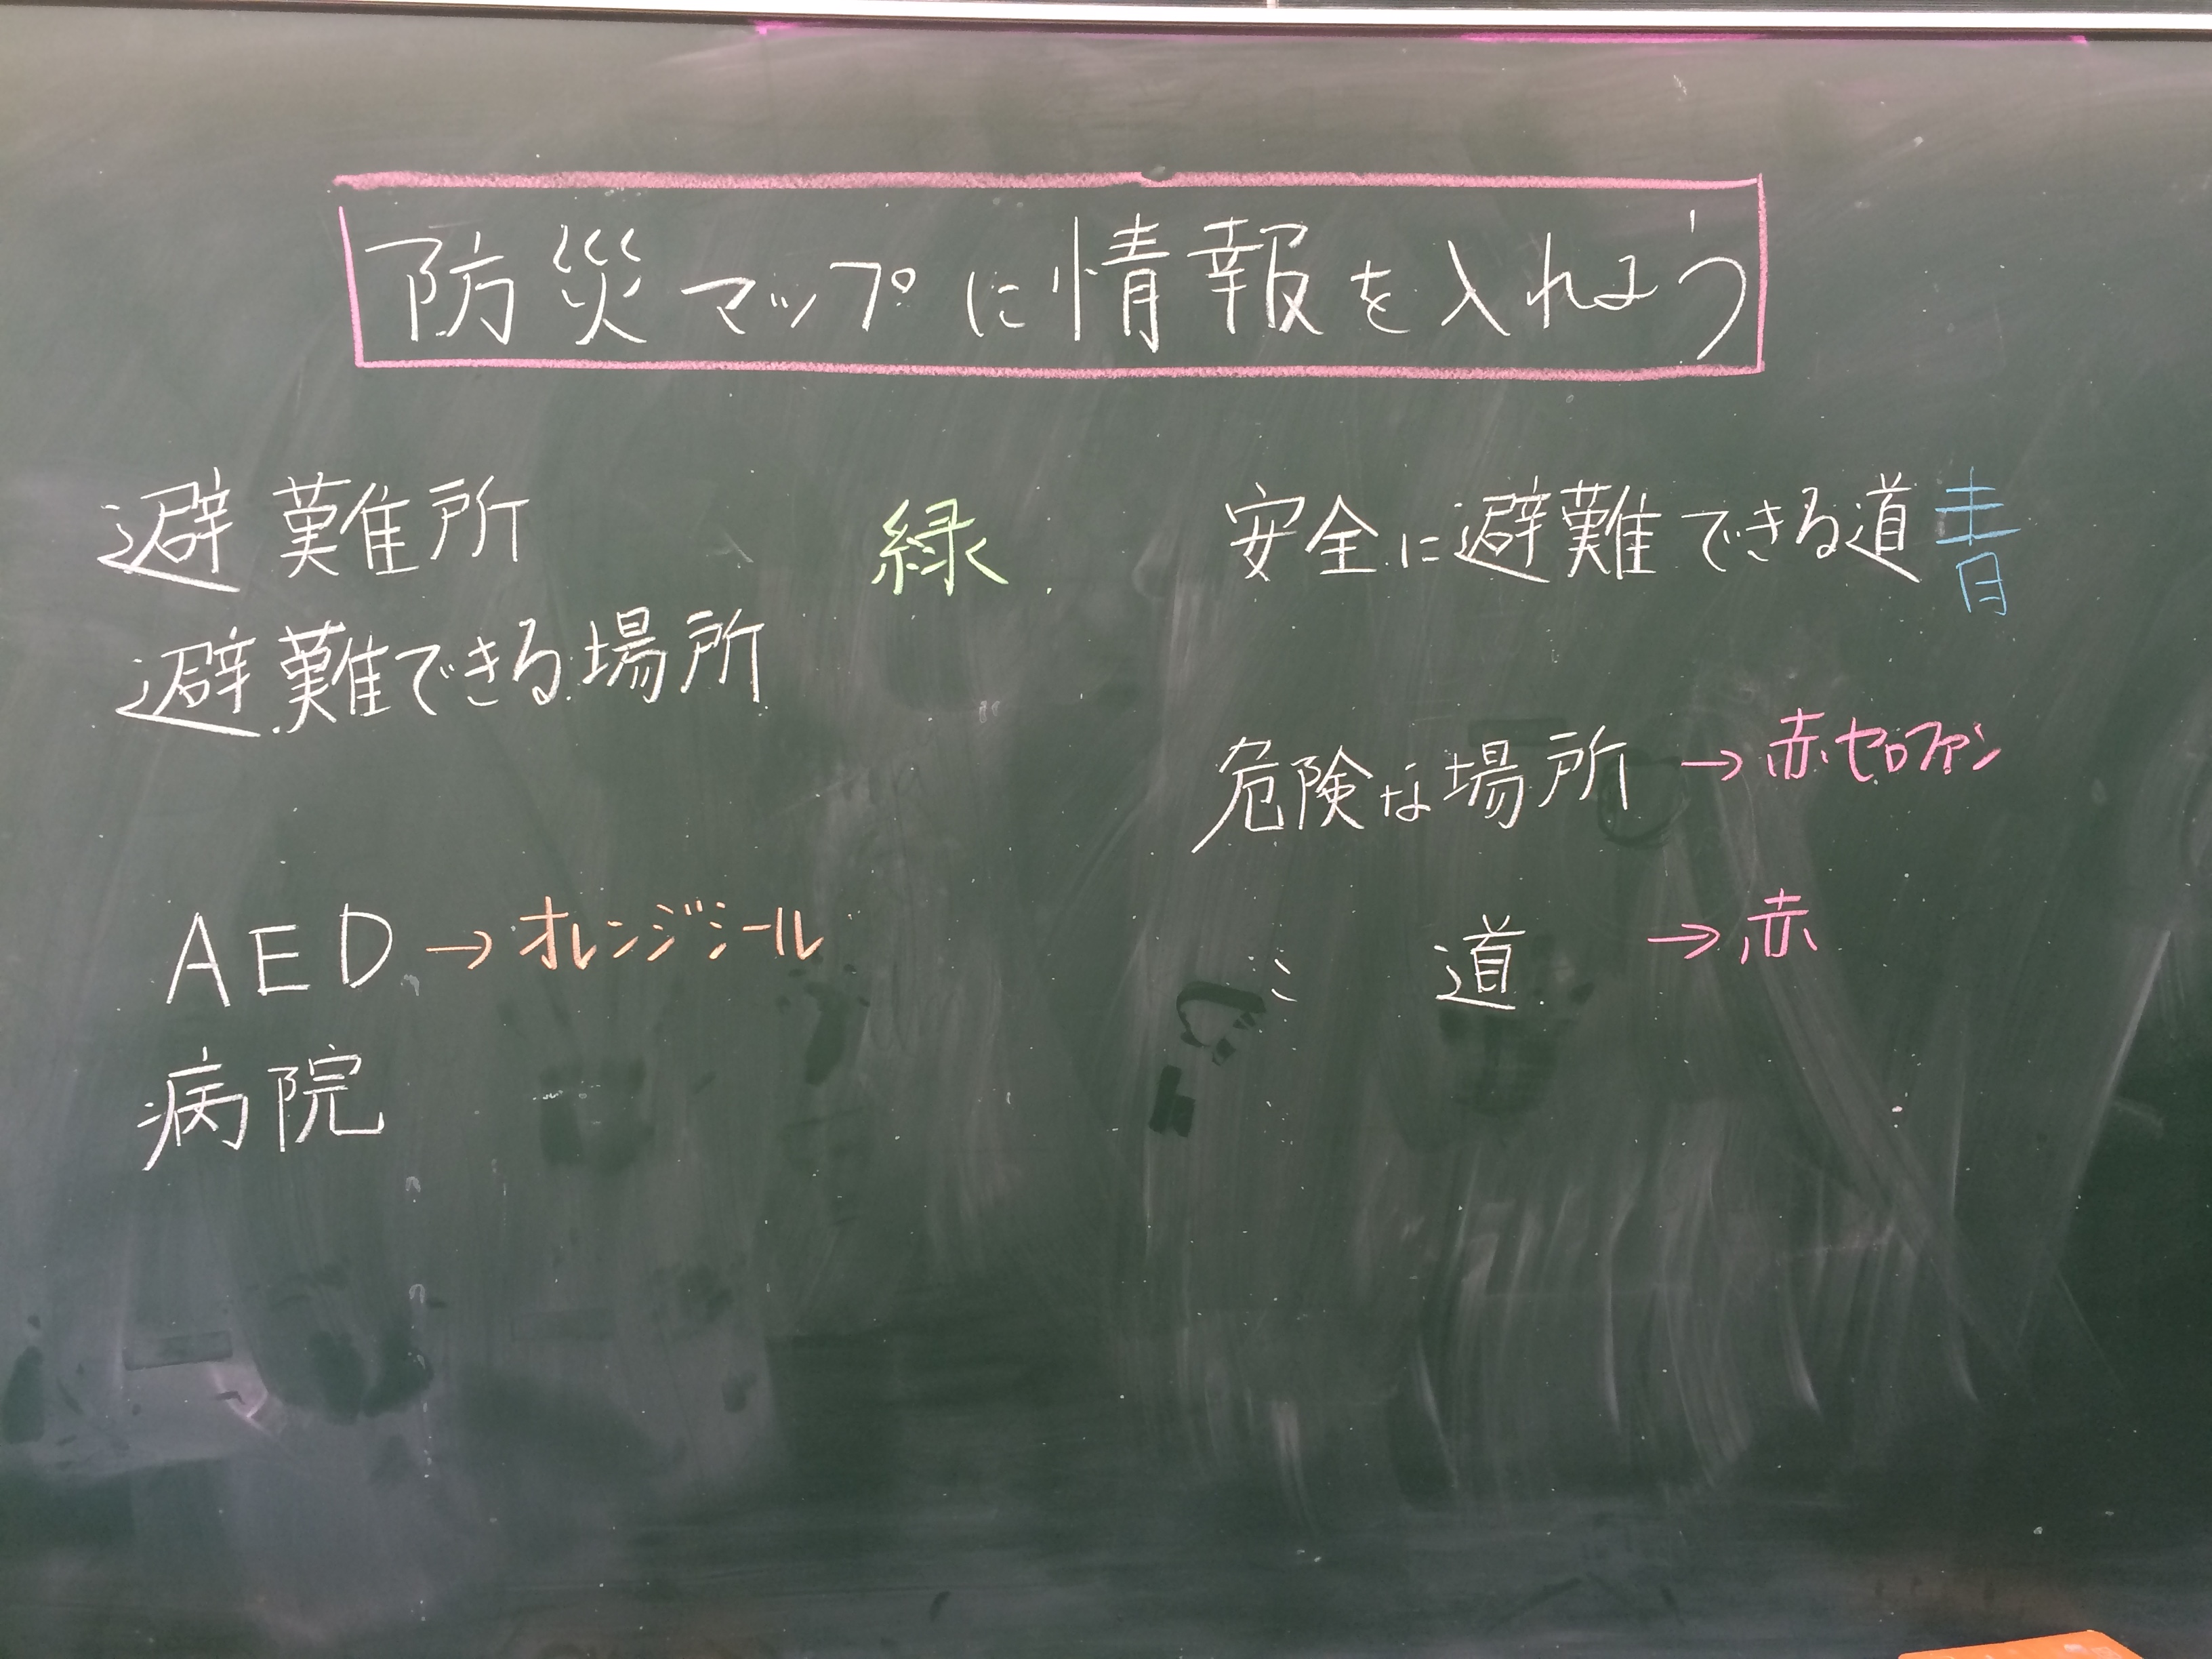 防災マップに情報を入れよう
避難所 緑
避難できる場所
AED→オレンジシール
病院
安全に避難できる道 青
危険な場所→赤セロファン
〃 道→赤